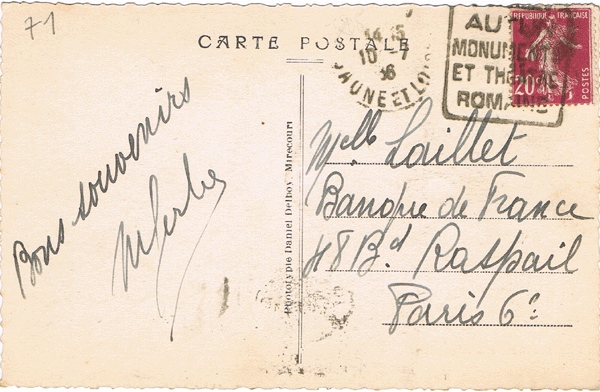 71
CARTE POSTALE
14 15
10-7
36
SAONE ET LOIRE
AUTUN
MONUMENTS
ET THEATRE
ROMAINS
REPUBLIQUE FRANÇAISE
20c
POSTES
Bons souvenirs
Mlle Laillet
Banque de France
48 Bd Raspail
Paris 6e
Phototypie Daniel Delboy, Mirecourt